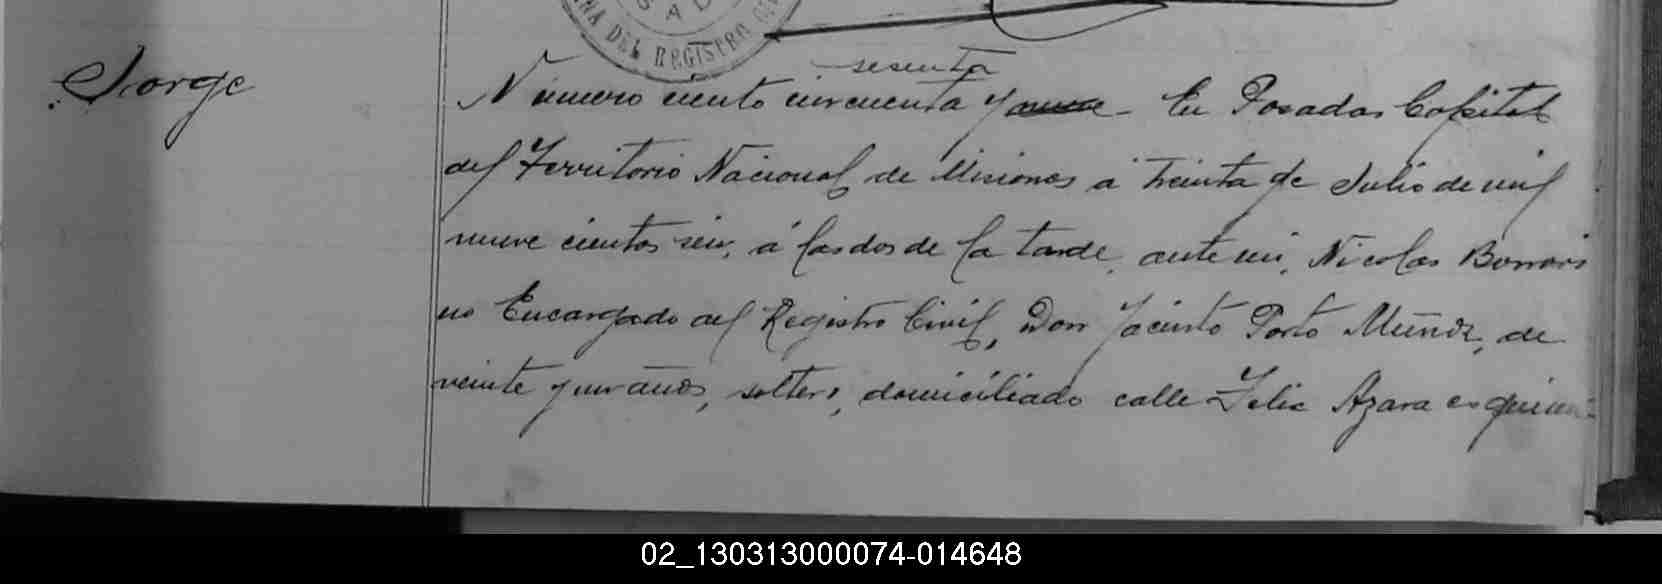 SADAS
NA DEL REGISTRO
Jorge
sesenta
Número ciento cincuenta y nueve - En Posadas Capital
del Territorio Nacional de Misiones á treinta de Julio de mil
nueve cientos seis, á las dos de la tarde, ante mi, Nicolas
no Encargado del Registro Civil, Don Jacinto Porto Muñoz, de
veinte y un años, soltero, domiciliado calle Felix Azara esquina
02_130313000074-014648